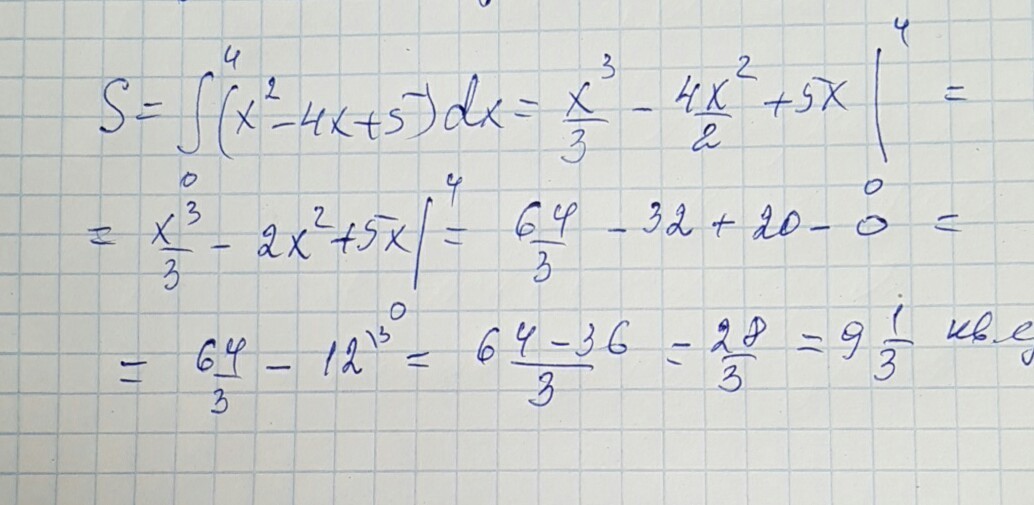 S = ∫₀⁴ (x² - 4x + 5) dx = x³/3 - 4x²/2 + 5x |₀⁴ =
= x³/3 - 2x² + 5x |₀⁴ = 64/3 - 32 + 20 - 0 =
= 64/3 - 12^{\3} = (64 - 36)/3 = 28/3 = 9 1/3 кв.е